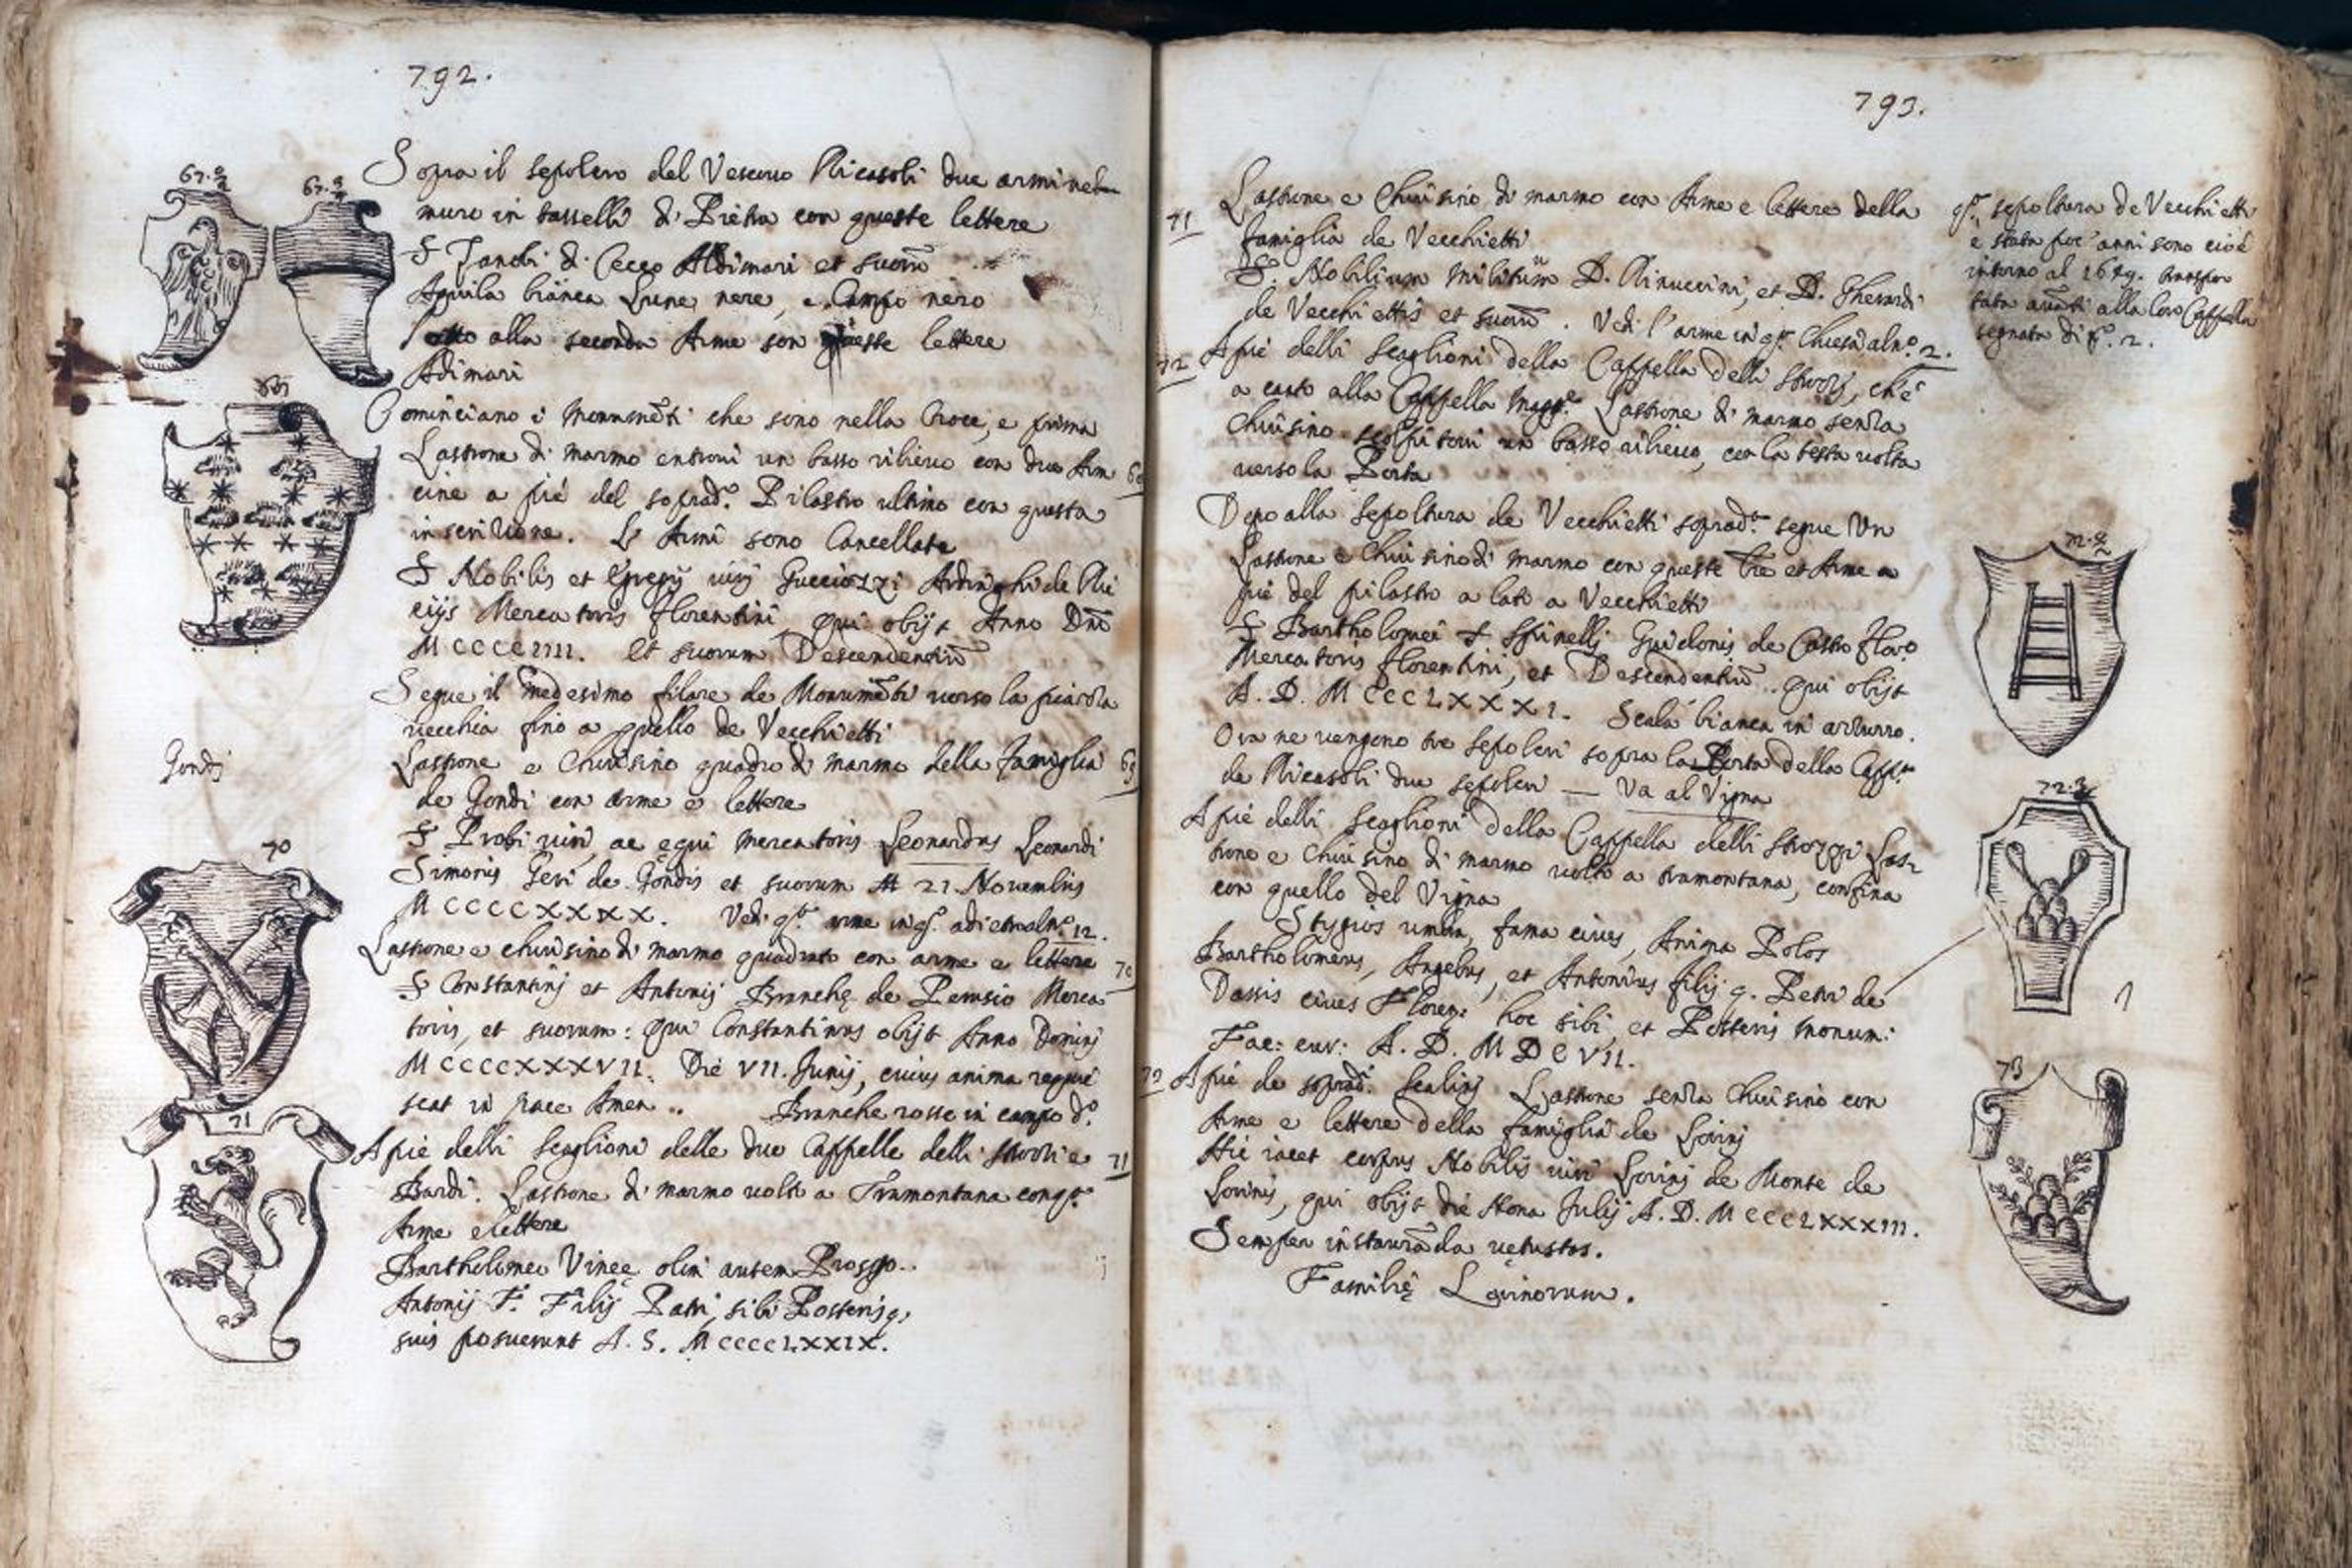 792.
67.2
67.3
Sopra il sepolcro del Vescovo Ricasoli due armi nel
muro in tasselli di Pietra con queste lettere
S Zanobi di Cecco Aldimari et suoru
Aquila bianca Lune nere, e Campo nero
sotto alla seconda Arme son queste lettere
Adimari
68
Cominciano i Monumēti che sono nella Croce, e prima
Lastrone di marmo entrovi un basso rilievo con due Arm
cine a pié del soprad.º Pilastro ultimo con questa
inscrizione. Le Armi sono Cancellate
S Nobilis et Egregij viri Gucciozzi Ardinghi de Ric
cijs Mercatoris florentini qui obijt Anno Dnī
MCCCCIIII. et suorum Descendentiū
Segue il medesimo filare de Monumēti verso la piazza
vecchia fino a quello de Vecchietti
Gondi
Lastrone e Chiusino quadro di marmo della Famiglia 69
de Gondi con arme e lettere
S Probi viri, ac egui mercatoris Leonardus Leonardi
Simonis Geri de Gondis et suorum 21. Novembris
MCCCCXXXX. Vedi arme adietro al nº 12.
70
Lastrone e chiusino di marmo quadrato con arme e lettere 70
S Constantinj et Antonij Branchę de Perusio Merca
toris, et suorum: qui Constantinus obijt Anno Dominj
MCCCCXXXVII. Die VII. Junij, cuius anima requie
scat in pace Amen.. Branche rosse in campo dº
71
A pié delli Scaglioni delle due Cappelle delli Strozzi e 71
Bardi. Lastrone di marmo volto a Tramontana con
Arme e lettere
Bartholomeo Vineę olim autem
Antonij Filij Patri, sibi Posterisq,
suis posuerunt A. S. MCCCCLXXIX.
793.
71 Lastrone e Chiusino di marmo con Arme e lettere della
famiglia de Vecchietti
S. Nobilium Militum D. Rinuccini, et D. Gherardi
de Vecchiettis et suoru. Vedi l'arme in Chiesa al nº. 2.
sepoltura de Vecchietti
è stata poc' anni sono cioè
intorno al transpor
tata avāti alla loro Cappella
segnata di nº. 2.
72 A pié delli Scaglioni della Cappella delli Strozzi, ch'é
a canto alla Cappella Magge. Lastrone di marmo senza
Chiusino scolpitovi un basso rilievo, con la testa volta
verso la Porta
72.2
Dopo alla sepoltura de Vecchietti soprad.ª segue Un
Lastrone e Chiusino di marmo con queste lre et Arme a
pié del pilastro a lato a Vecchietti
S Bartholomei Spinellj Guidonis de Castro flor.º
Mercatoris florentini, et Descendentiū. qui obijt
A. D. MCCCLXXXI. Scala bianca in azzurro.
Ora ne vengono tre sepolcri sopra la Porta della Capp.ª
de Ricasoli due sepolcri — Va al Vigna
72.3
A pié delli Scaglioni della Cappella delli Strozzi Las-
trone e Chiusino di marmo volto a tramontana, confina
con quello del Vigna
Stygios umbra, fama cives, Anima Polos
Bartholomeus, Angelus, et Antonius filij q. Petri de
Dassis cives Floren: hoc sibi, et Posteris monum:
Fac: cur: A. D. MDCVII.
73
73 A pié de soprad. Scalinj Lastrone senza Chiusino con
Arme e lettere della famiglia de Lovinj
Hic iacet corpus Nobilis viri Lovinj de Monte de
Lovinis, qui obijt die Nona Julij A. D. MCCCLXXXIII.
Semper instaurāda vetustas.
Familię Lovinorum.